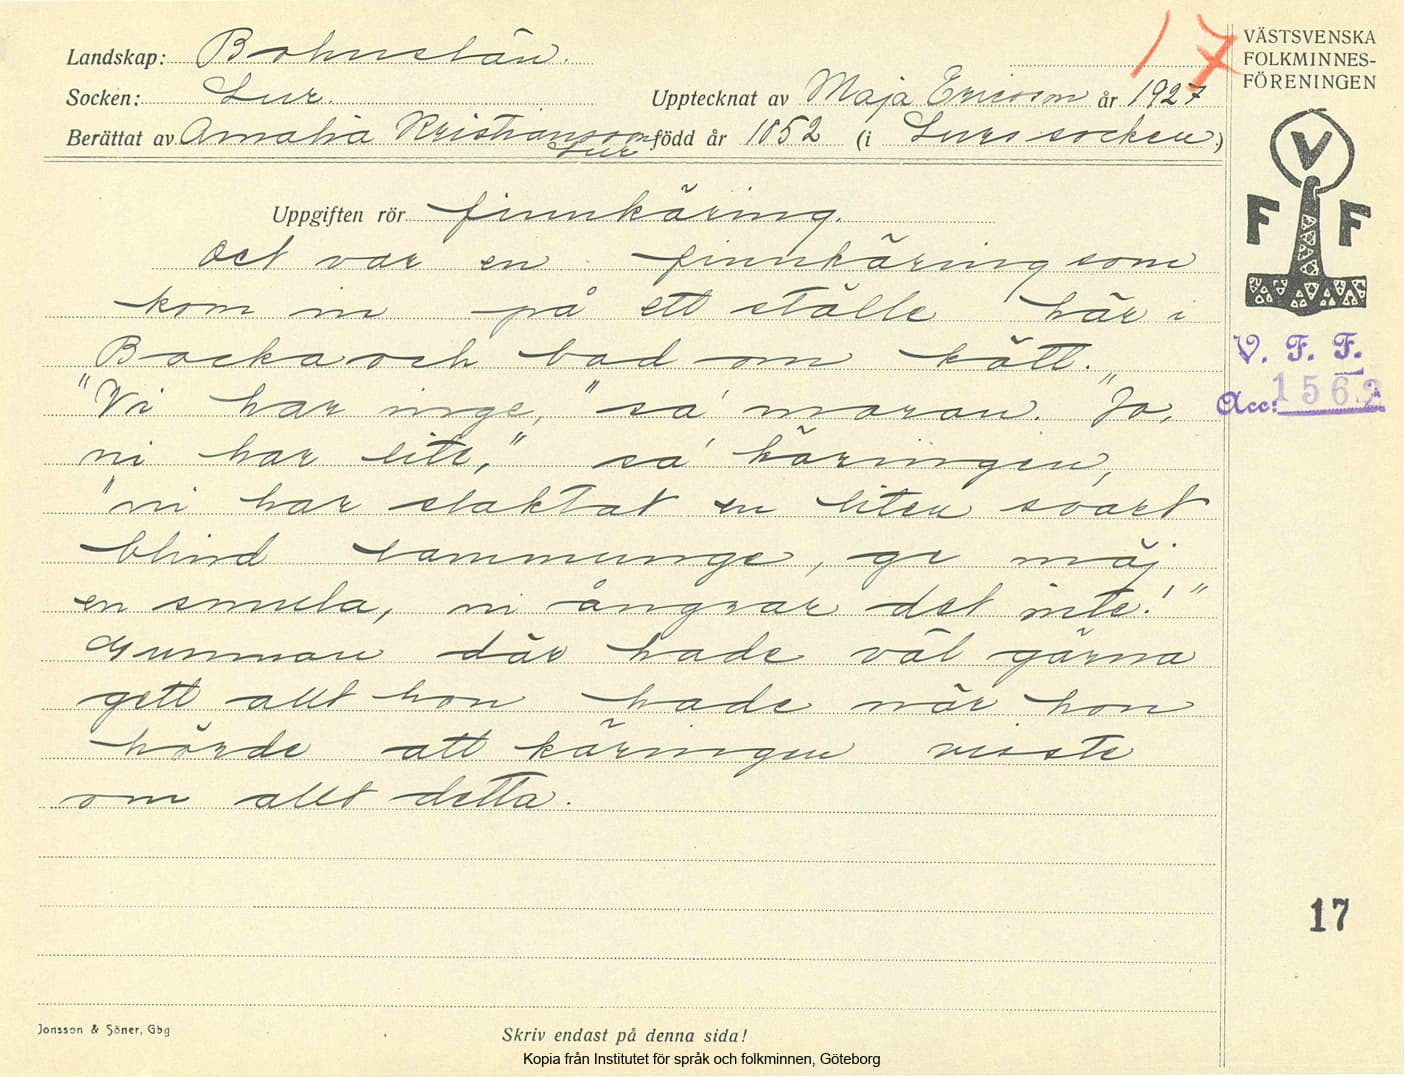 Landskap: Bohuslän.
Socken: Lur.
Upptecknat av Maja Ericson år 1927
Berättat av Amalia Kristiansson född år 1852 (i Lurs socken.)
Lur
17
VÄSTSVENSKA
FOLKMINNES-
FÖRENINGEN
V
F F
V. F. F.
Acc: 1562
Uppgiften rör finnkäring.
Det var en finnkäring som
kom in på ett ställe här i
Backa och bad om kött.
"Vi har inge," sa' moran. "Jo,
ni har lite," sa' käringen,
"ni har slaktat en liten svart
blind lammunge, ge mäj
en smula, ni ångrar det inte!"
Gumman där hade väl gärna
gett allt hon hade när hon
hörde att käringen visste
om allt detta.
17
Jonsson & Söner, Gbg
Skriv endast på denna sida!
Kopia från Institutet för språk och folkminnen, Göteborg